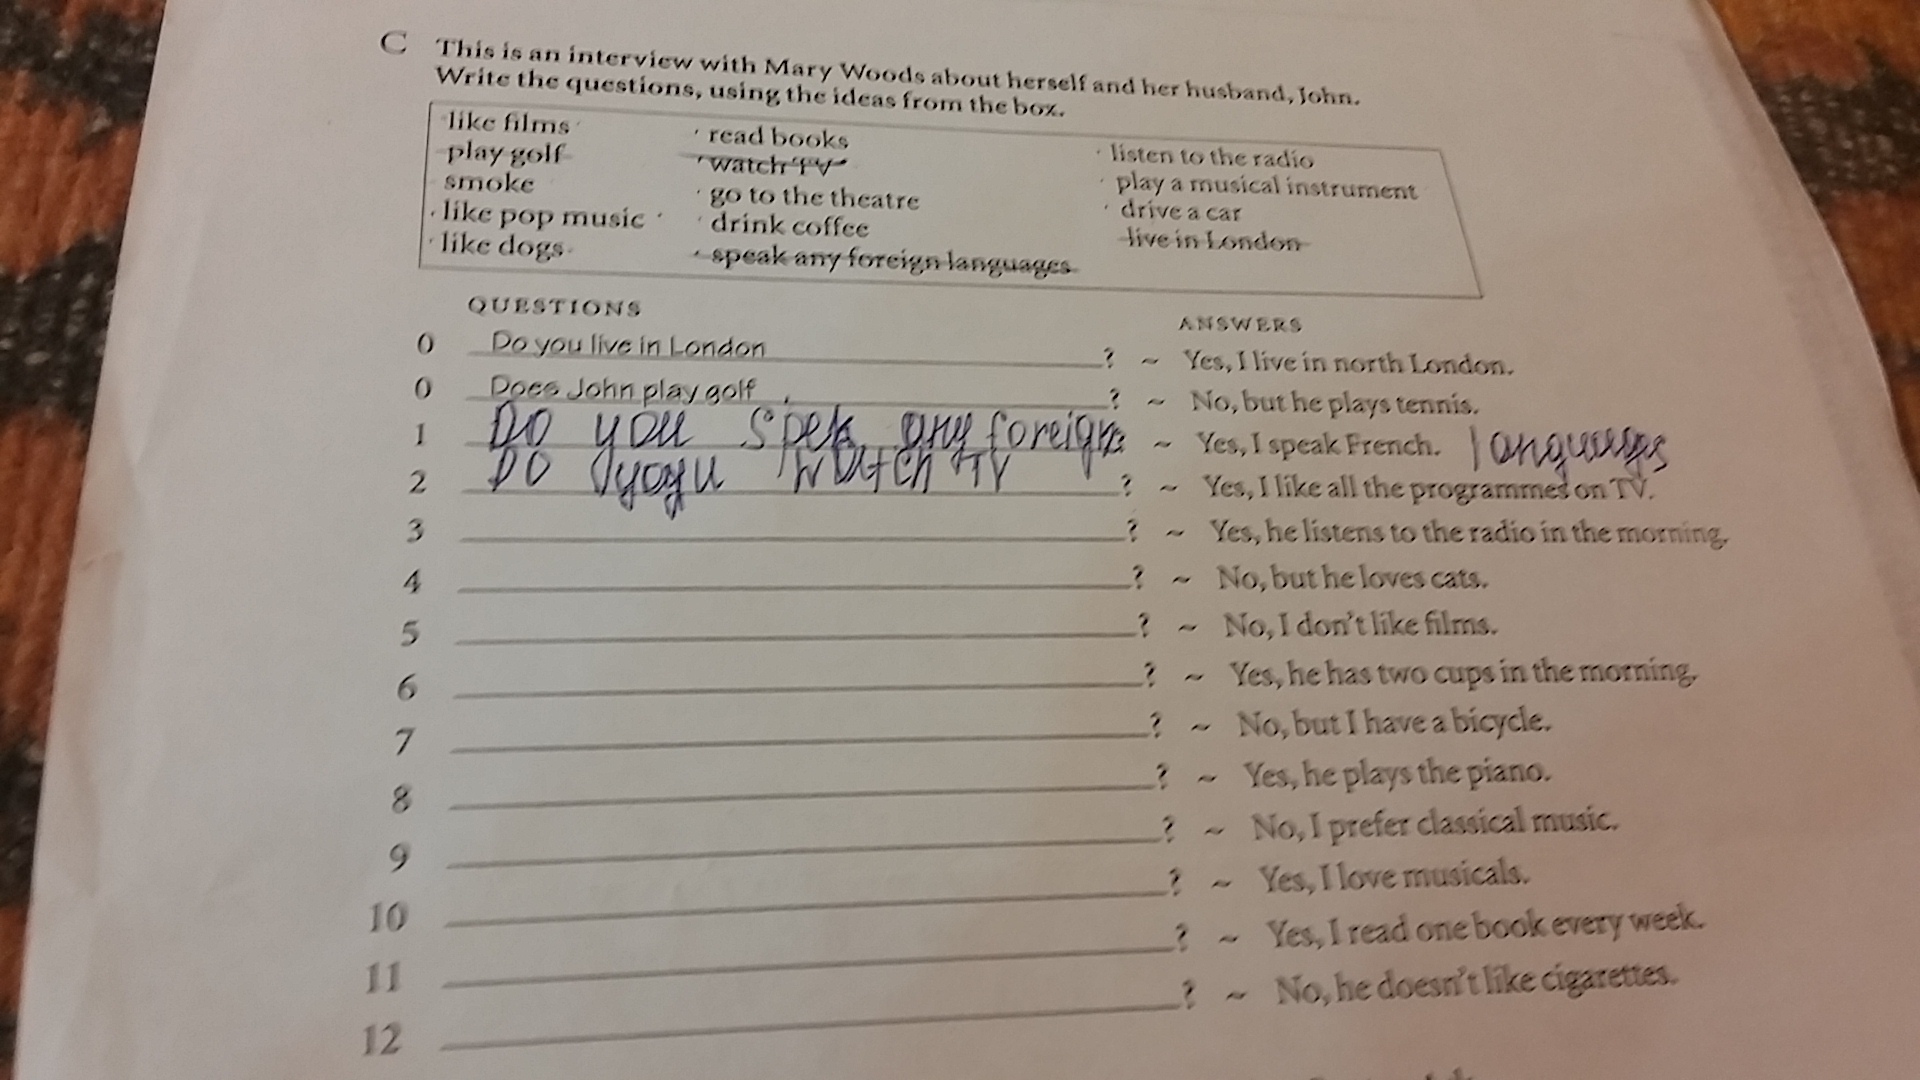 C This is an interview with Mary Woods about herself and her husband, John.
Write the questions, using the ideas from the box.
like films · read books · listen to the radio
play golf · watch TV · play a musical instrument
smoke · go to the theatre · drive a car
like pop music · drink coffee live in London
like dogs · speak any foreign languages
QUESTIONS ANSWERS
0 Do you live in London ? ~ Yes, I live in north London.
0 Does John play golf ? ~ No, but he plays tennis.
1 Do you spek any foreign ? ~ Yes, I speak French. languages
2 Do yoyu watch TV ? ~ Yes, I like all the programmes on TV.
3 ? ~ Yes, he listens to the radio in the morning.
4 ? ~ No, but he loves cats.
5 ? ~ No, I don't like films.
6 ? ~ Yes, he has two cups in the morning.
7 ? ~ No, but I have a bicycle.
8 ? ~ Yes, he plays the piano.
9 ? ~ No, I prefer classical music.
10 ? ~ Yes, I love musicals.
11 ? ~ Yes, I read one book every week.
12 ? ~ No, he doesn't like cigarettes.